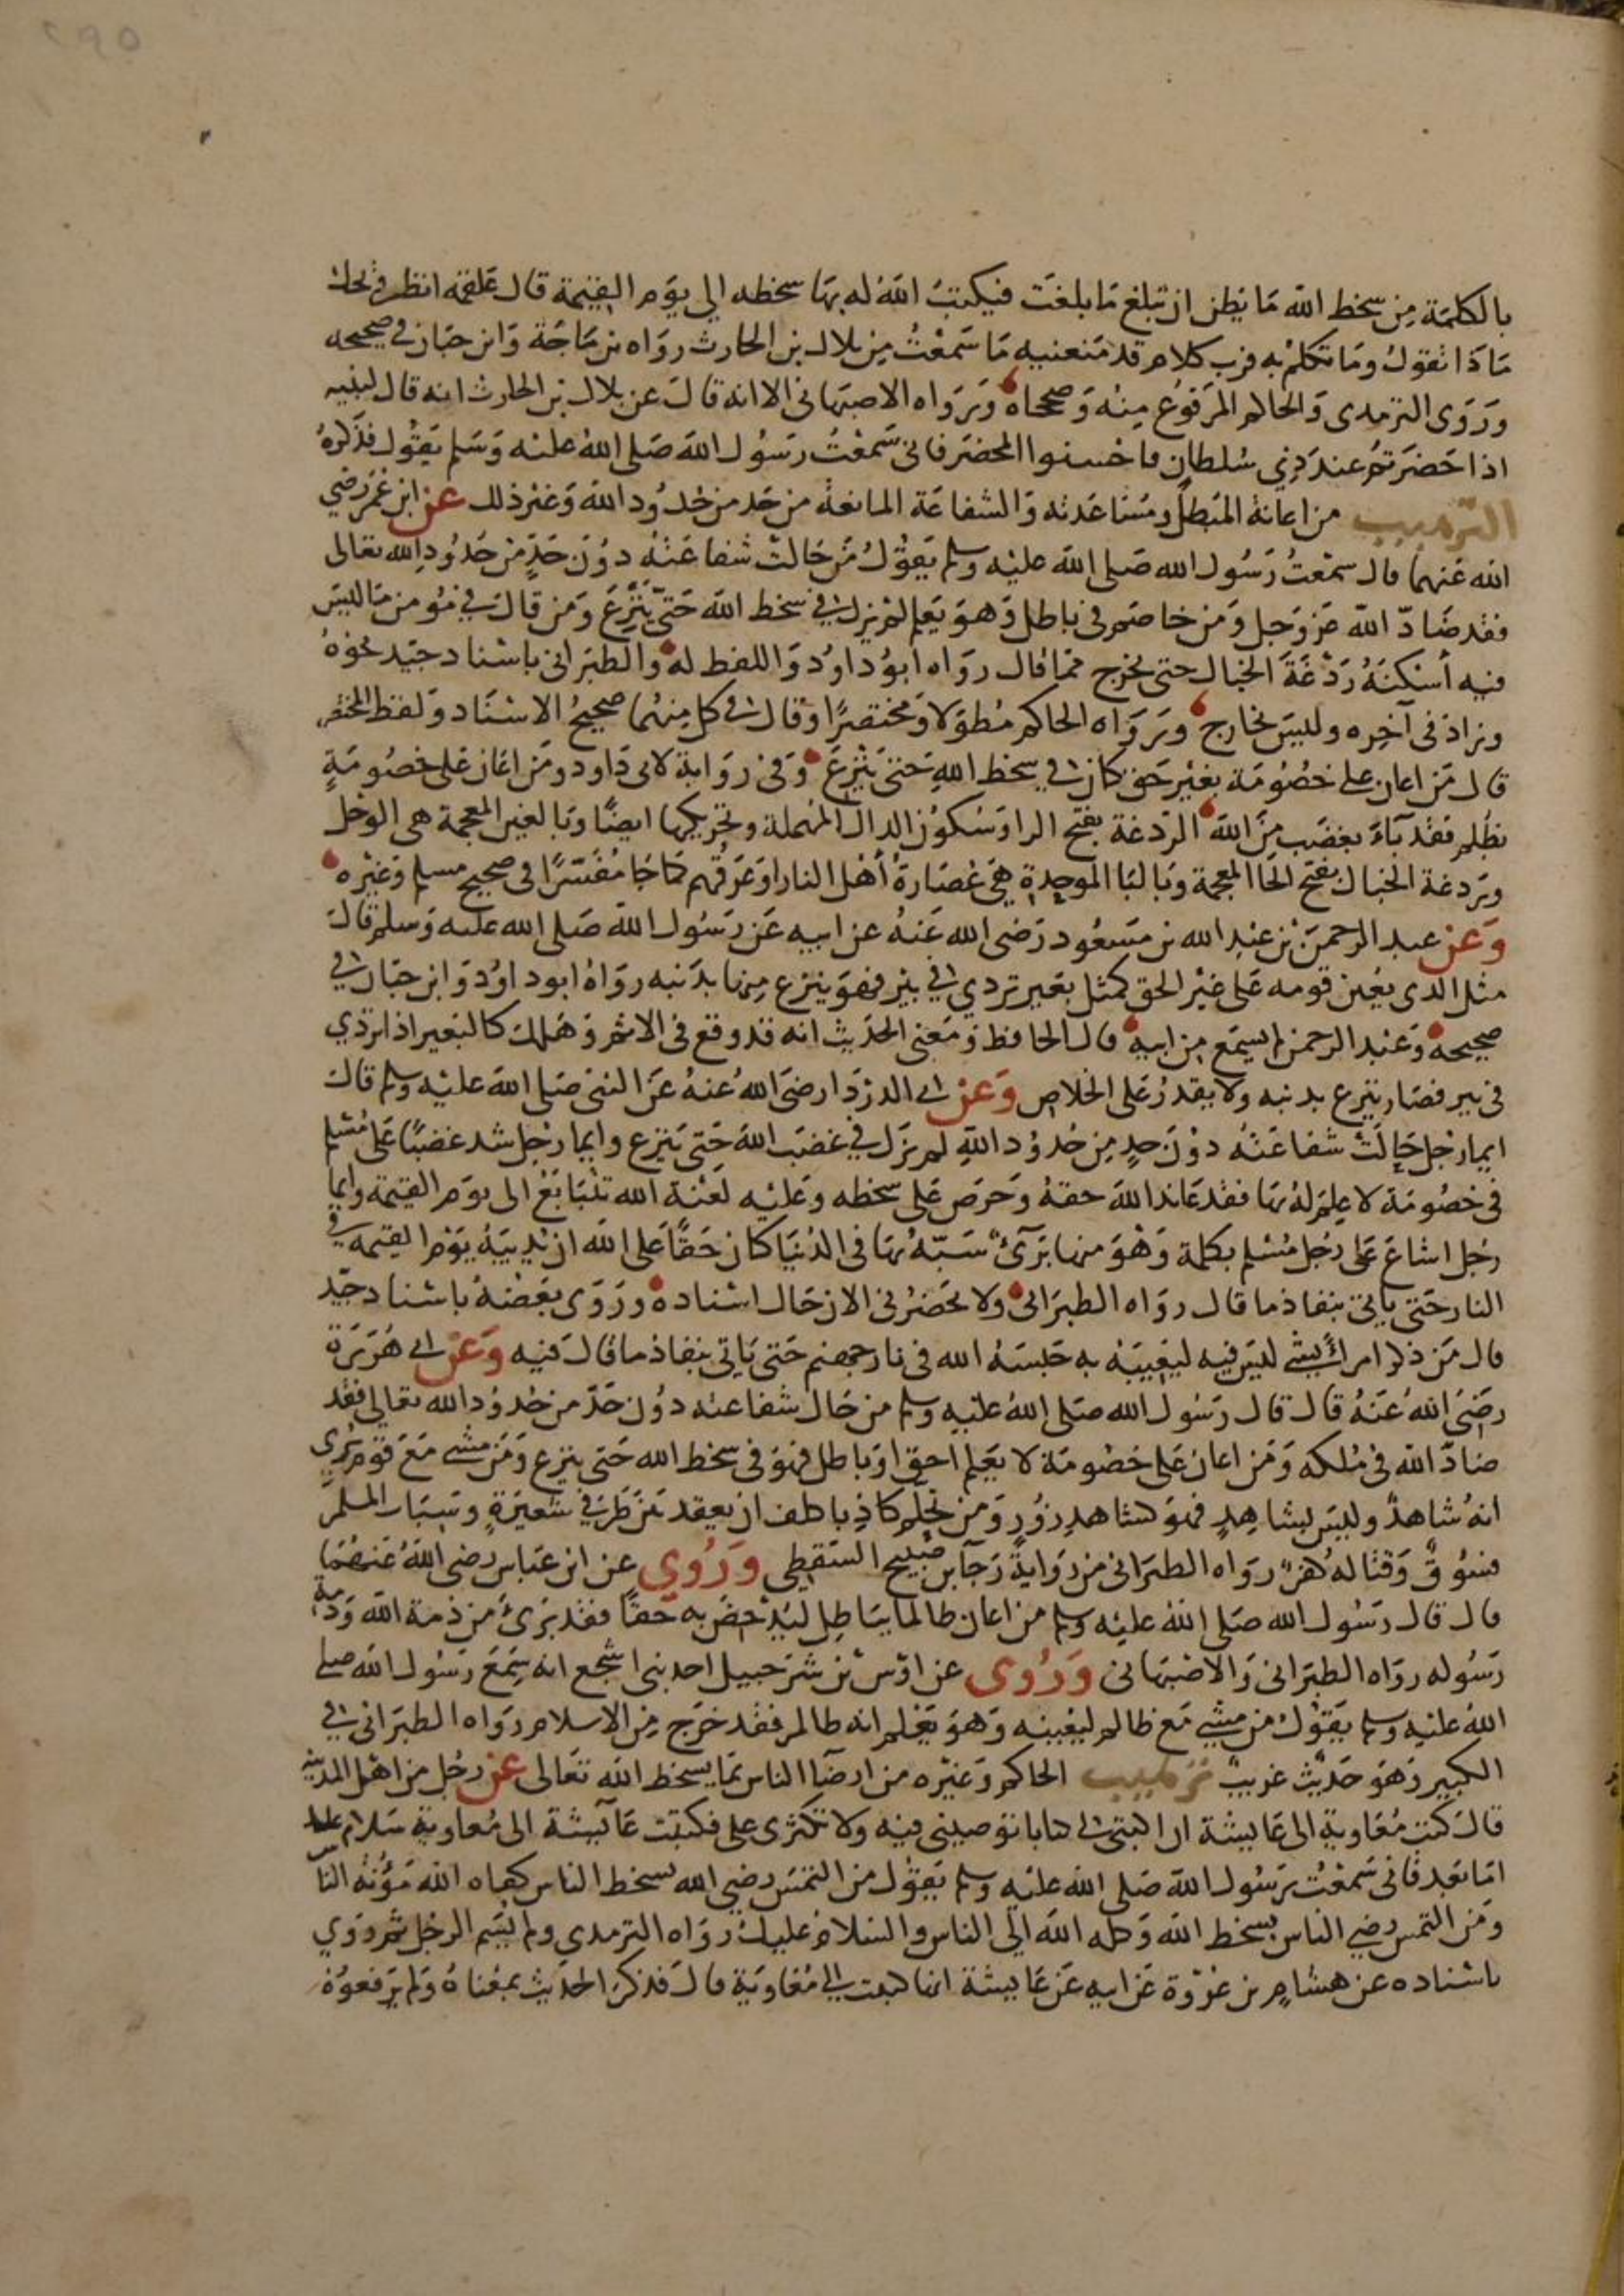 ٢٩٥
بالكلمة من سخط الله ما يظن ان تبلغ ما بلغت فيكتب الله له بها سخطه الي يوم القيمة قال علقمة انظر ويحك
ماذا تقول وما تكلم به فرب كلام قد منعنيه ما سمعت من بلال بن الحارث رواه بن ماجة وابن حبان في صحيحه
وروى الترمدى والحاكم المرفوع منه وصححاه ورواه الاصبهانى الا انه قال عن بلال بن الحارث انه قال لبنيه
اذا حضرتم عند ذي سلطان فاحسنوا المحضر فانى سمعت رسول الله صلى الله عليه وسلم يقول فذكره
الترهيب من اعانة المبطل ومساعدته والشفاعة المانعة من حد من حدود الله وغير ذلك عن ابن عمر رضي
الله عنهما قال سمعت رسول الله صلى الله عليه وسلم يقول من حالت شفاعته دون حد من حدود الله تعالى
فقد ضاد الله عز وجل ومن خاصم في باطل وهو يعلم لم يزل في سخط الله حتى ينزع ومن قال في مؤمن ما ليس
فيه أسكنه ردغة الخبال حتى يخرج مما قال رواه ابو داود واللفظ له والطبرانى باسناد جيد نحوه
وزاد فى آخره وليس بخارج ورواه الحاكم مطولا ومختصرا وقال في كل منهما صحيح الاسناد ولفظ المختصر
قال من اعان على خصومة بغير حق كان في سخط الله حتى ينزع وفى رواية لابى داود ومن اعان على خصومة
بظلم فقد باء بغضب من الله الردغة بفتح الرا وسكون الدال المهملة وتحريكها ايضا وبالغين المعجمة هى الوحل
وردغة الخبال بفتح الخا المعجمة وبالبا الموحدة هي عصارة أهل النار او عرقهم كما جا مفسرا فى صحيح مسلم وغيره
وعن عبد الرحمن بن عبد الله بن مسعود رضى الله عنه عن ابيه عن رسول الله صلى الله عليه وسلم قال
مثل الدى يعين قومه على غير الحق كمثل بعير تردي في بير فهو ينزع منها بدنبه رواه ابو داود وابن حبان في
صحيحه وعبد الرحمن لم يسمع من ابيه قال الحافظ ومعنى الحديث انه قد وقع فى الاثم وهلك كالبعير اذا تردي
فى بير فصار ينزع بدنبه ولا يقدر على الخلاص وعن ابي الدردا رضى الله عنه عن النبى صلى الله عليه وسلم قال
ايما رجل حالت شفاعته دون حد من حدود الله لم يزل في غضب الله حتى ينزع وايما رجل شد غضبا على مسلم
فى خصومة لا علم له بها فقد عاند الله حقه وحرص على سخطه وعليه لعنة الله تتابع الى يوم القيمة وايما
رجل اشاع على رجل مسلم بكلمة وهو منها برئ سبه بها فى الدنيا كان حقا على الله ان يذيبه يوم القيمه في
النار حتى ياتى بنفاذ ما قال رواه الطبرانى ولا يحضرنى الان حال اسناده وروى بعضه باسناد جيد
قال من ذكر امرأ بشئ ليس فيه ليعيبه به حبسه الله فى نار جهنم حتى ياتى بنفاذ ما قال فيه وعن ابي هريرة
رضى الله عنه قال قال رسول الله صلى الله عليه وسلم من حال شفاعته دون حد من حدود الله تعالي فقد
ضاد الله فى ملكه ومن اعان على خصومة لا يعلم احق او باطل فهو فى سخط الله حتى ينزع ومن مشى مع قوم يرى
انه شاهد وليس بشاهد فهو كشاهد زور ومن تحلم كاذبا كلف ان يعقد بين طرفي شعيرة وسباب المسلم
فسوق وقتاله كفر رواه الطبرانى من رواية رجآ بن صبيح السقطي وروي عن ابن عباس رضى الله عنهما
قال قال رسول الله صلى الله عليه وسلم من اعان ظالما بباطل ليدحض به حقا فقد برئ من ذمة الله وذمة
رسوله رواه الطبرانى والاصبهانى وروى عن اوس بن شرحبيل احد بنى اشجع انه سمع رسول الله صلى
الله عليه وسلم يقول من مشى مع ظالم ليعينه وهو يعلم انه ظالم فقد خرج من الاسلام رواه الطبرانى في
الكبير وهو حديث غريب ترهيب الحاكم وغيره من ارضآ الناس بما يسخط الله تعالى عن رجل من اهل المدينة
قال كتب معاوية الى عايشة ان اكتبى لي كتابا توصينى فيه ولا تكثرى على فكتبت عآيشة الى معاوية سلام عليك
اما بعد فانى سمعت رسول الله صلى الله عليه وسلم يقول من التمس رضي الله بسخط الناس كفاه الله مؤنة الناس
ومن التمس رضي الناس بسخط الله وكله الله الي الناس والسلام عليك رواه الترمدي ولم يسم الرجل ثم روي
باسناده عن هشام بن عروة عن ابيه عن عايشة انها كتبت الي معاوية قال فذكر الحديث بمعناه ولم يرفعوه